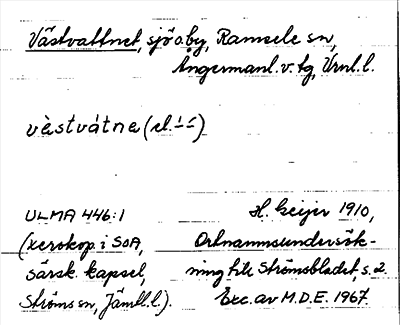 Västvattnet, sjö o. by, Ramsele sn,
Ångermanl. v. tg, Vrnl. l.
vèstvátne (el. ´-´)
ULMA 446:1
(xerokop. i SOA,
särsk. kapsel,
Ströms sn, Jämtl. l.).
H. Geijer 1910,
Ortnamnsundersök-
ning till Strömsbladet, s. 2.
Exc. av M.D.E. 1967.